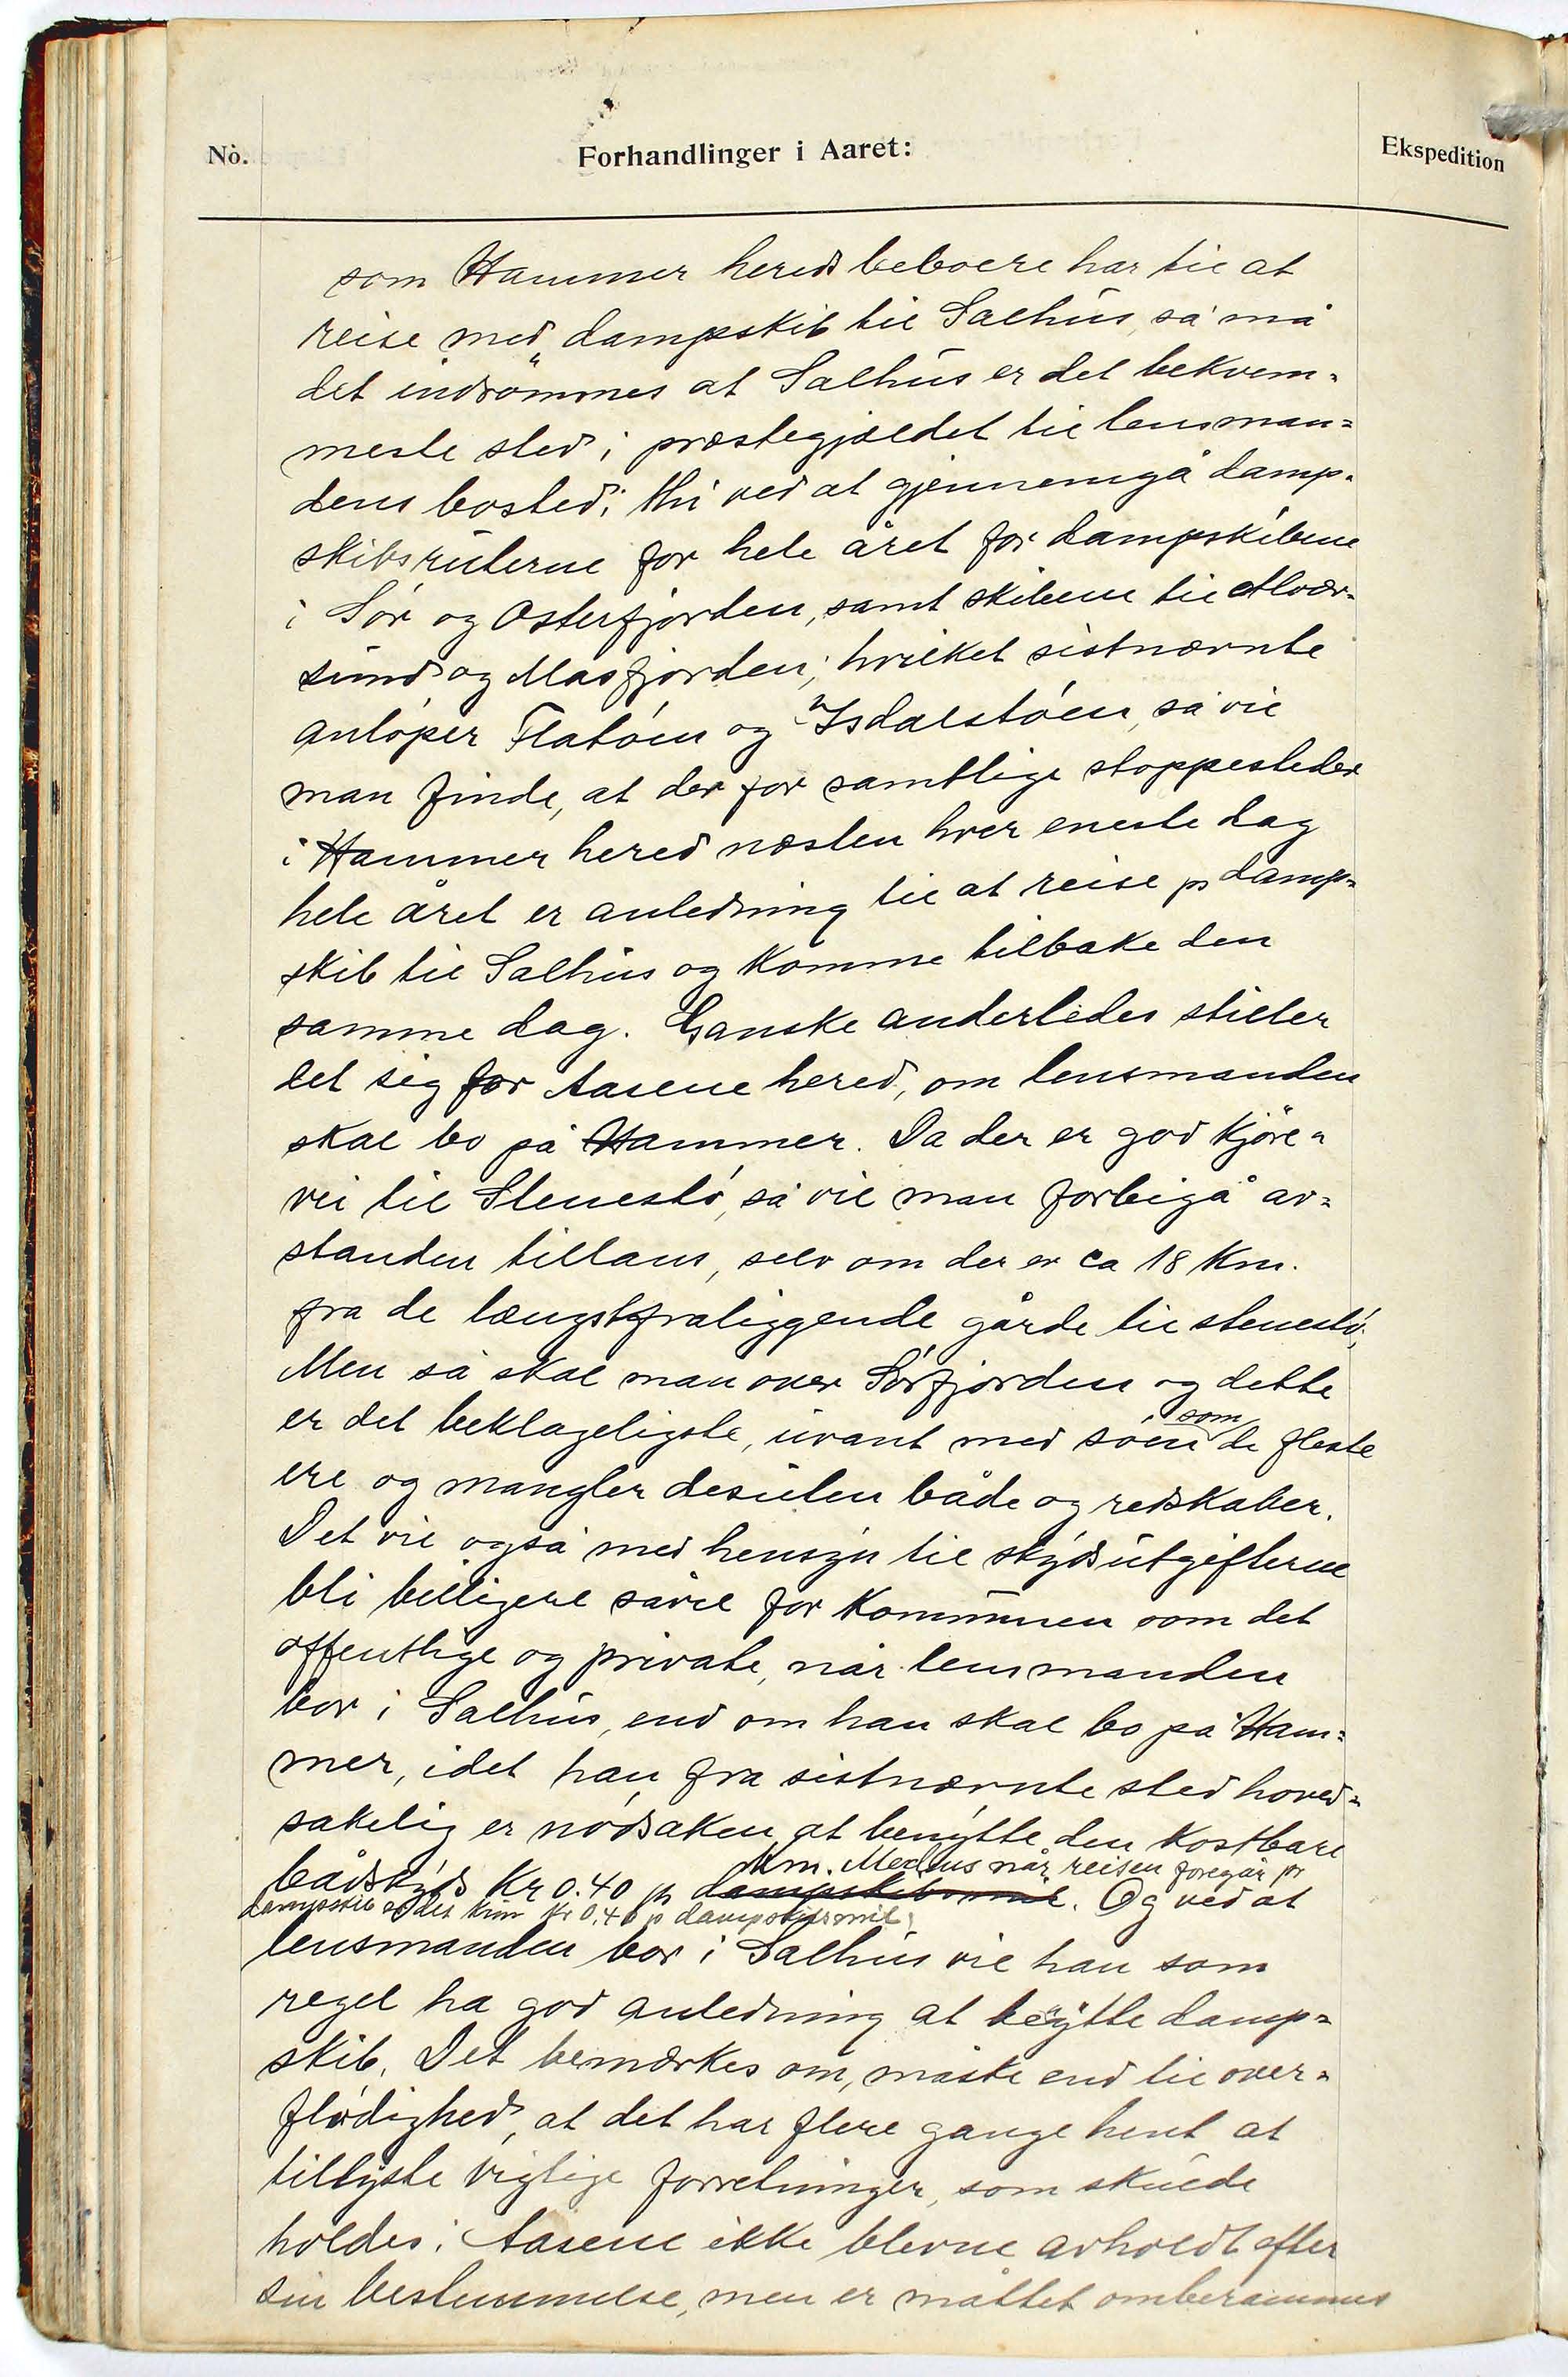 Nò.
Forhandlinger i Aaret:
Ekspedition
som Hammer hereds beboere har til at
reise med dampskib til Salhus, så må
det indrømmes at Salhus er det bekvem-
meste sted i præstegjældet til lensman-
dens bosted; thi ved at gjennemgå damp-
skibsruterne for hele året for dampskibene
i Sør og Osterfjorden, samt skibene til Alvær-
sund og Masfjorden, hvilket sistnævnte
anløper Flatøen og Isdalstøen, så vil
man finde, at der for samtlige stoppesteder
i Hammer hered næsten hver eneste dag
hele året er anledning til at reise pr damp-
skib til Salhus og komme tilbake den
samme dag. Ganske anderledes stiller
det sig for Aasene hered, om lensmanden
skal bo på Hammer. Da der er god kjøre-
vei til Stenestø, så vil man forbigå av-
standen tillans, selv om der er ca 18 Km.
fra de længstfraliggende gårde til stenestø,
Men så skal man over Sørfjorden og dette
er det beklageligste, uvant med søen som de fleste
ere og mangler desuten både og redskaber.
Det vil også med hensyn til skydsutgifterne
bli billigere såvel for Kommunen som det
offentlige og private, når lensmanden
bor i Salhus, end om han skal bo på Ham-
mer, idet han fra sistnævnte sted hoved-
sakelig er nødsaken at benytte den kostbare
Km. Medens når reisen foregår pr
bådskyds Kr 0.40 pr dampskibsmil. Og ved at
dampskib er det kun Kr 0,40 pr dampskibsmil,
lensmanden bor i Salhus vil han som
regel ha god anledning at benytte damp-
skib. Det bemærkes om, måske end til over-
flødighed, at det har flere gange hent at
tillyste vigtige forretninger, som skulde
holdes i Aasene ikke blevne avholdt efter
sin bestemmelse, men er måttet omberammes